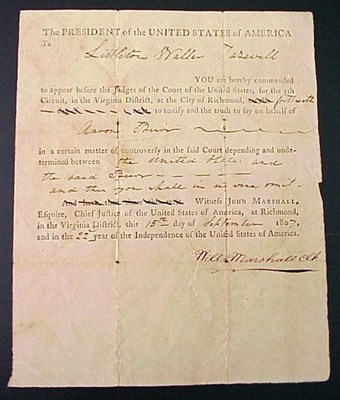 The PRESIDENT of the UNITED STATES of AMERICA
To
Littleton Waller Tazewell
YOU are hereby commanded
to appear before the Judges of the Court of the United States, for the 5th
Circuit, in the Virginia District, at the City of Richmond, forthwith
to testify and the truth to say on behalf of
Aaron Burr
in a certain matter of controversy in the said Court depending and unde-
termined between the United States and
the said Burr
and this you shall in no wise omit.
Witness JOHN MARSHALL,
Esquire, Chief Justice of the United States of America, at Richmond,
in the Virginia District, this 15th day of September 1807,
and in the 32 year of the Independence of the United States of America.
Will: Marshall Clk